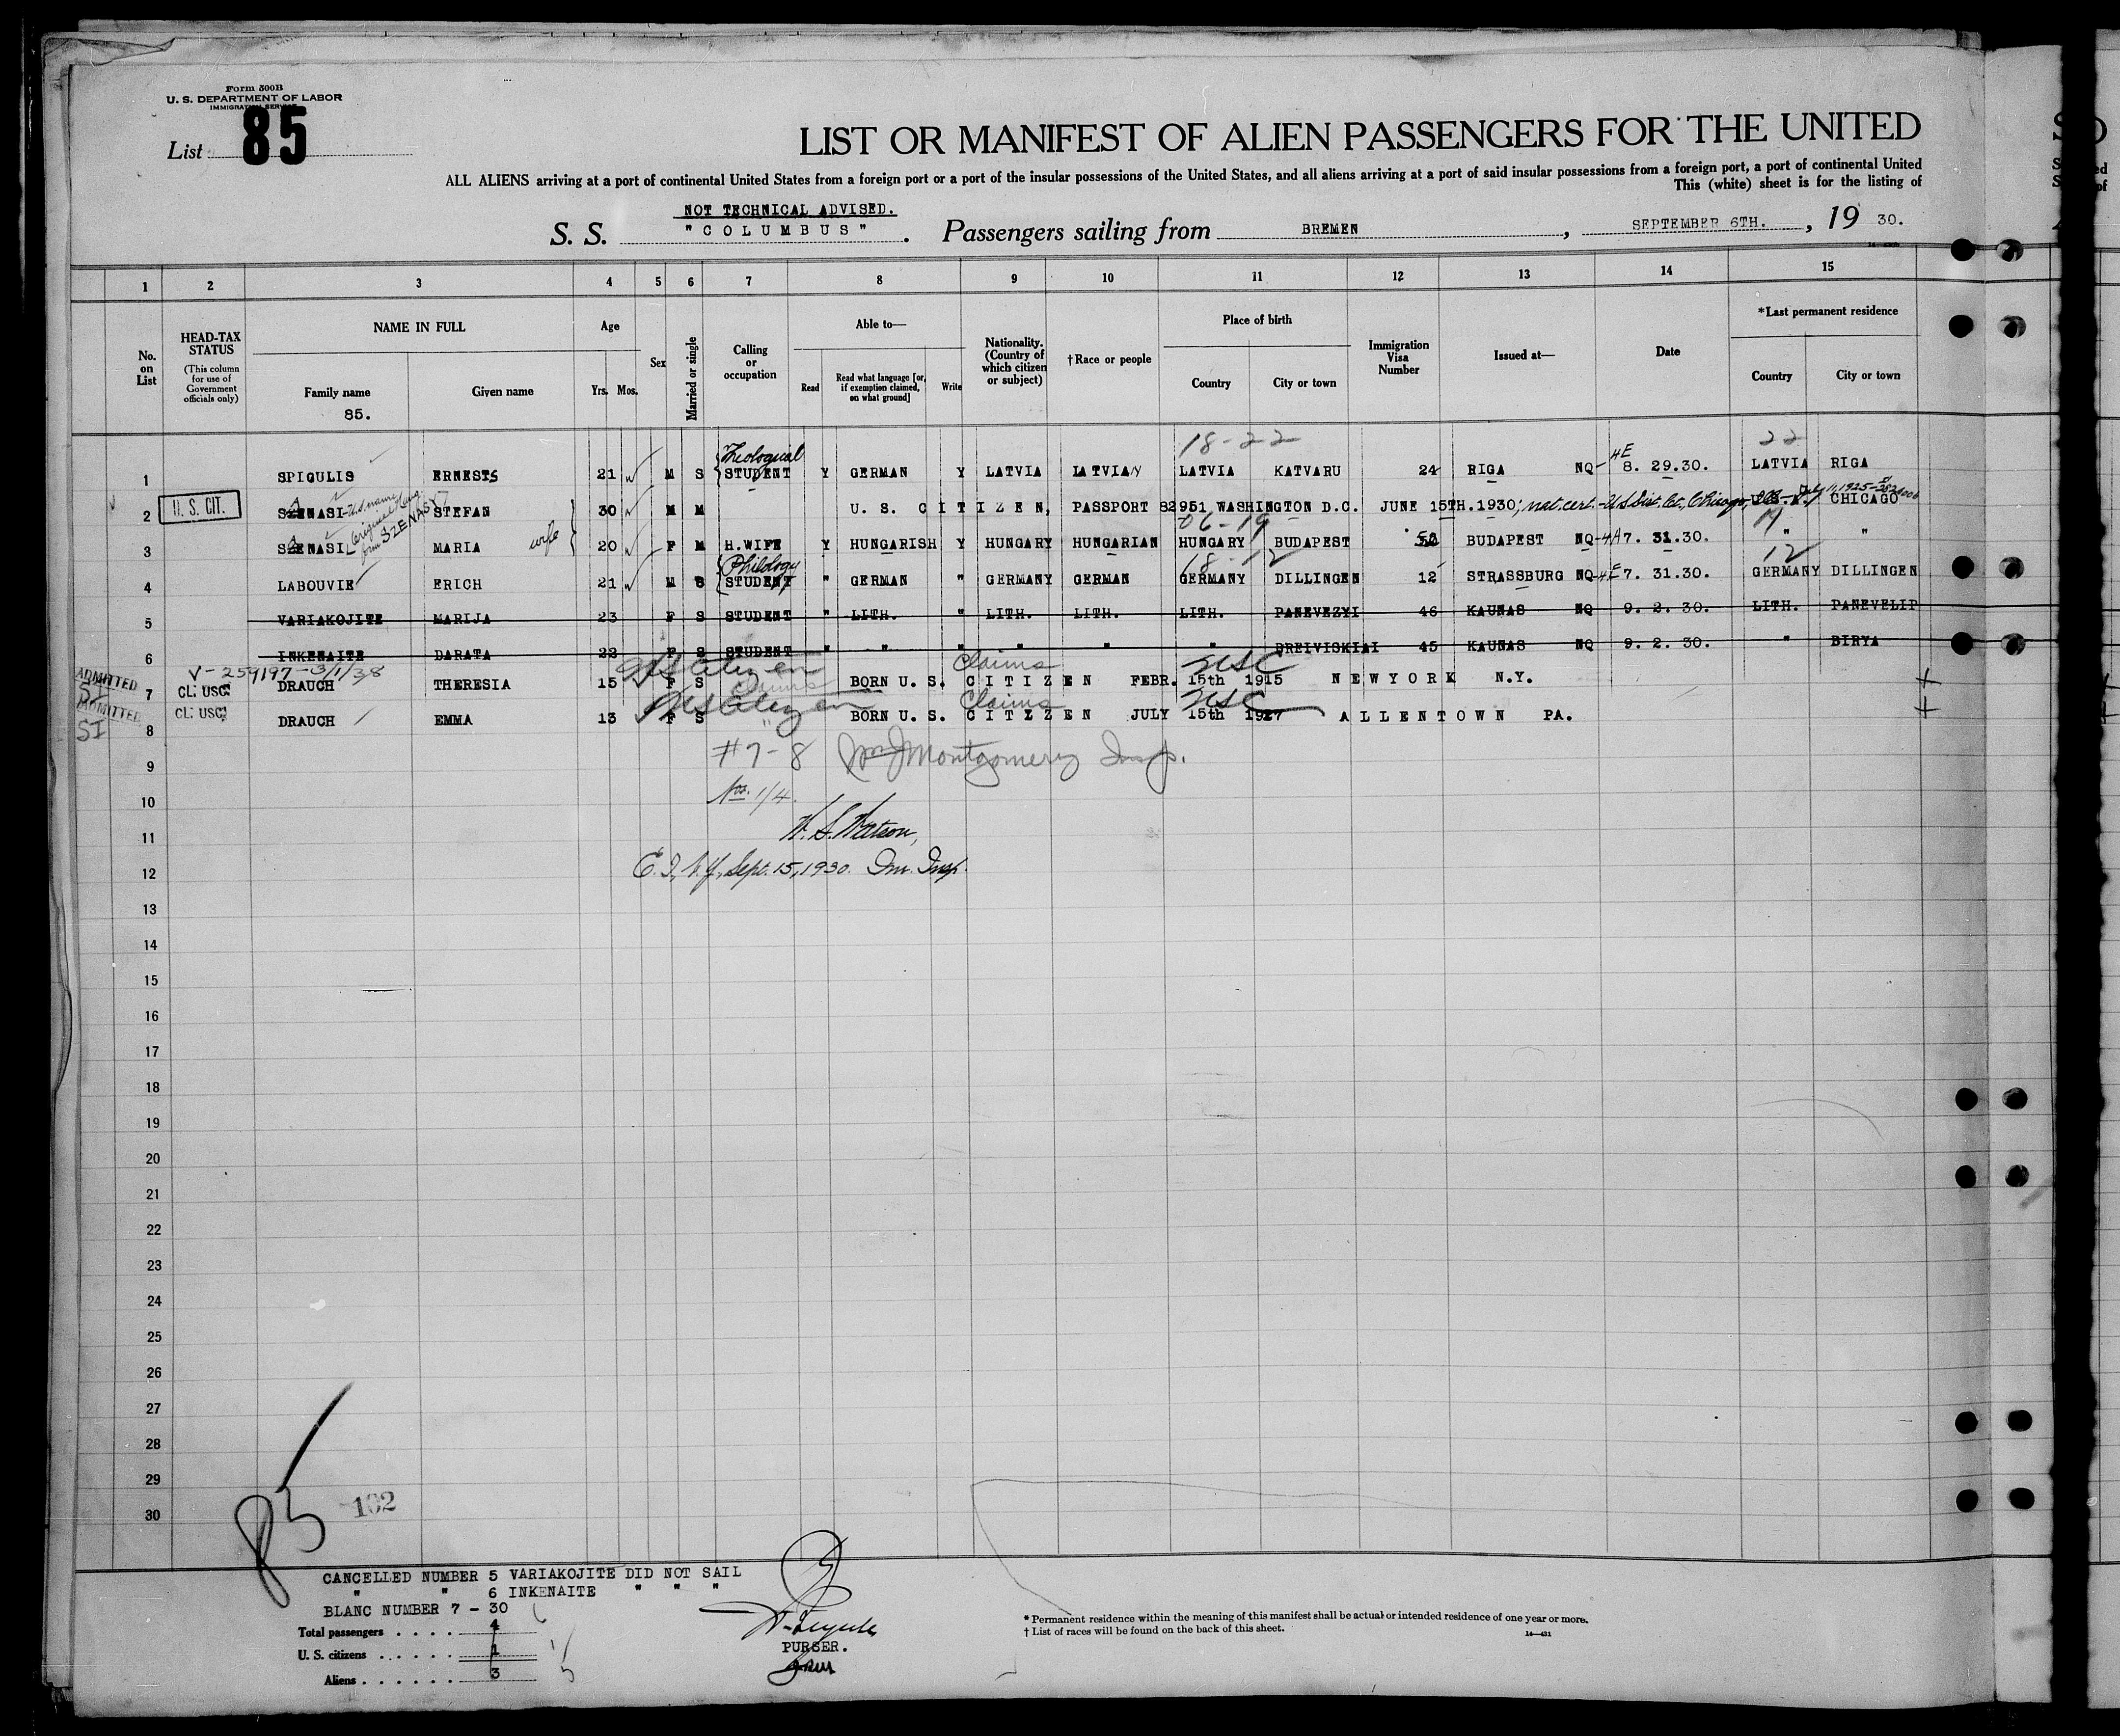 Form 500B
U. S. DEPARTMENT OF LABOR
IMMIGRATION SERVICE
List 85
LIST OR MANIFEST OF ALIEN PASSENGERS FOR THE UNITED
ALL ALIENS arriving at a port of continental United States from a foreign port or a port of the insular possessions of the United States, and all aliens arriving at a port of said insular possessions from a foreign port, a port of continental United
This (white) sheet is for the listing of
NOT TECHNICAL ADVISED.
S. S. "COLUMBUS". Passengers sailing from BREMEN, SEPTEMBER 6TH., 19 30.
1 2 3 4 5 6 7 8 9 10 11 12 13 14 15
No. on List
HEAD-TAX STATUS (This column for use of Government officials only)
NAME IN FULL
Family name
85.
Given name
Age
Yrs. Mos.
Sex
Married or single
Calling or occupation
Able to—
Read
Read what language [or, if exemption claimed, on what ground]
Write
Nationality. (Country of which citizen or subject)
†Race or people
Place of birth
Country
City or town
Immigration Visa Number
Issued at—
Date
*Last permanent residence
Country
City or town
18-22 22
Theological 4E
1 SPIGULIS ERNESTS 21 M S STUDENT Y GERMAN Y LATVIA LATVIA LATVIA KATVARU 24 RIGA NQ- 8. 29.30. LATVIA RIGA
2 U. S. CIT. SZENASI U.S. name STEFAN 30 M M U. S. CITIZEN, PASSPORT 82951 WASHINGTON D.C. JUNE 15TH.1930; nat. cert. U.S. Dist. Ct., Chicago, CHICAGO
06-19
3 SZENASI form SZENASY MARIA wife 20 F M H.WIFE Y HUNGARISH Y HUNGARY HUNGARIAN HUNGARY BUDAPEST 52 BUDAPEST NQ-4A 7. 31.30. " "
Philology 18-12 12
4 LABOUVIE ERICH 21 M S STUDENT " GERMAN " GERMANY GERMAN GERMANY DILLINGEN 12 STRASSBURG NQ-4E 7. 31.30. GERMANY DILLINGEN
5 VARIAKOJITE MARIJA 23 F S STUDENT " LITH. " LITH. LITH. LITH. PANEVEZYI 46 KAUNAS NQ 9. 2. 30. LITH. PANEVELIP
6 INKENAITE DARATA 22 F S STUDENT " " " " " " BREIVISKIAI 45 KAUNAS NQ 9. 2. 30. " BIRYA
V-259197-3/1/38 US Citizen Claims USC
ADMITTED SI 7 CL: USC: DRAUCH THERESIA 15 F S BORN U. S. CITIZEN FEBR. 15th 1915 NEWYORK N.Y.
US Citizen Claims USC
ADMITTED SI 8 CL: USC: DRAUCH EMMA 13 F S BORN U. S. CITZZEN JULY 15th 1927 ALLENTOWN PA.
9 #7-8 Wm J Montgomery Insp.
10 Nos. 1/4.
11 W. S. Watson,
12 E.I., N.Y., Sept. 15, 1930. Im. Insp.
13
14
15
16
17
18
19
20
21
22
23
24
25
26
27
28
29
30
85 102
CANCELLED NUMBER 5 VARIAKOJITE DID NOT SAIL
" " 6 INKENAITE " " "
BLANC NUMBER 7 - 30
Total passengers . . . . 4
U. S. citizens . . . . . . 1
Aliens . . . . . . 3
PURSER.
* Permanent residence within the meaning of this manifest shall be actual or intended residence of one year or more.
† List of races will be found on the back of this sheet.
14—431